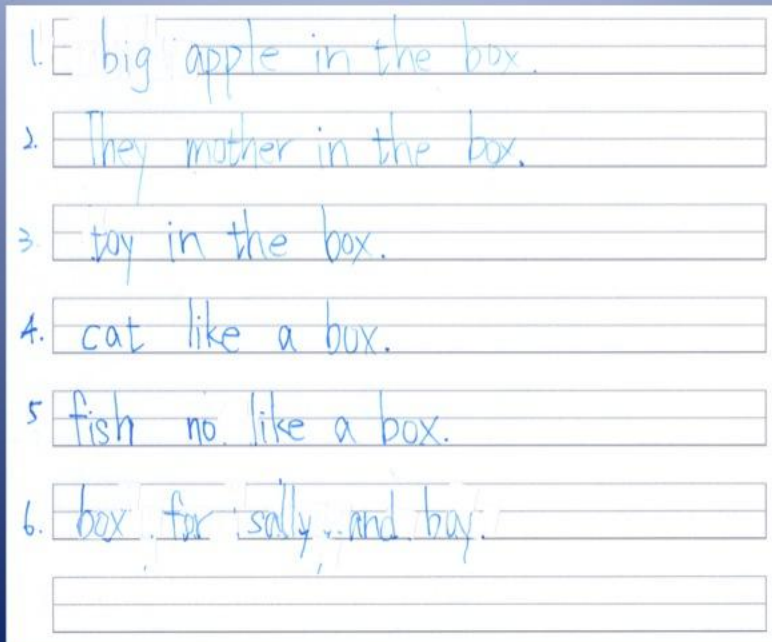 1. big apple in the box.
2. They mother in the box.
3. toy in the box.
4. cat like a box.
5 fish no like a box.
6. box for sally and boy.